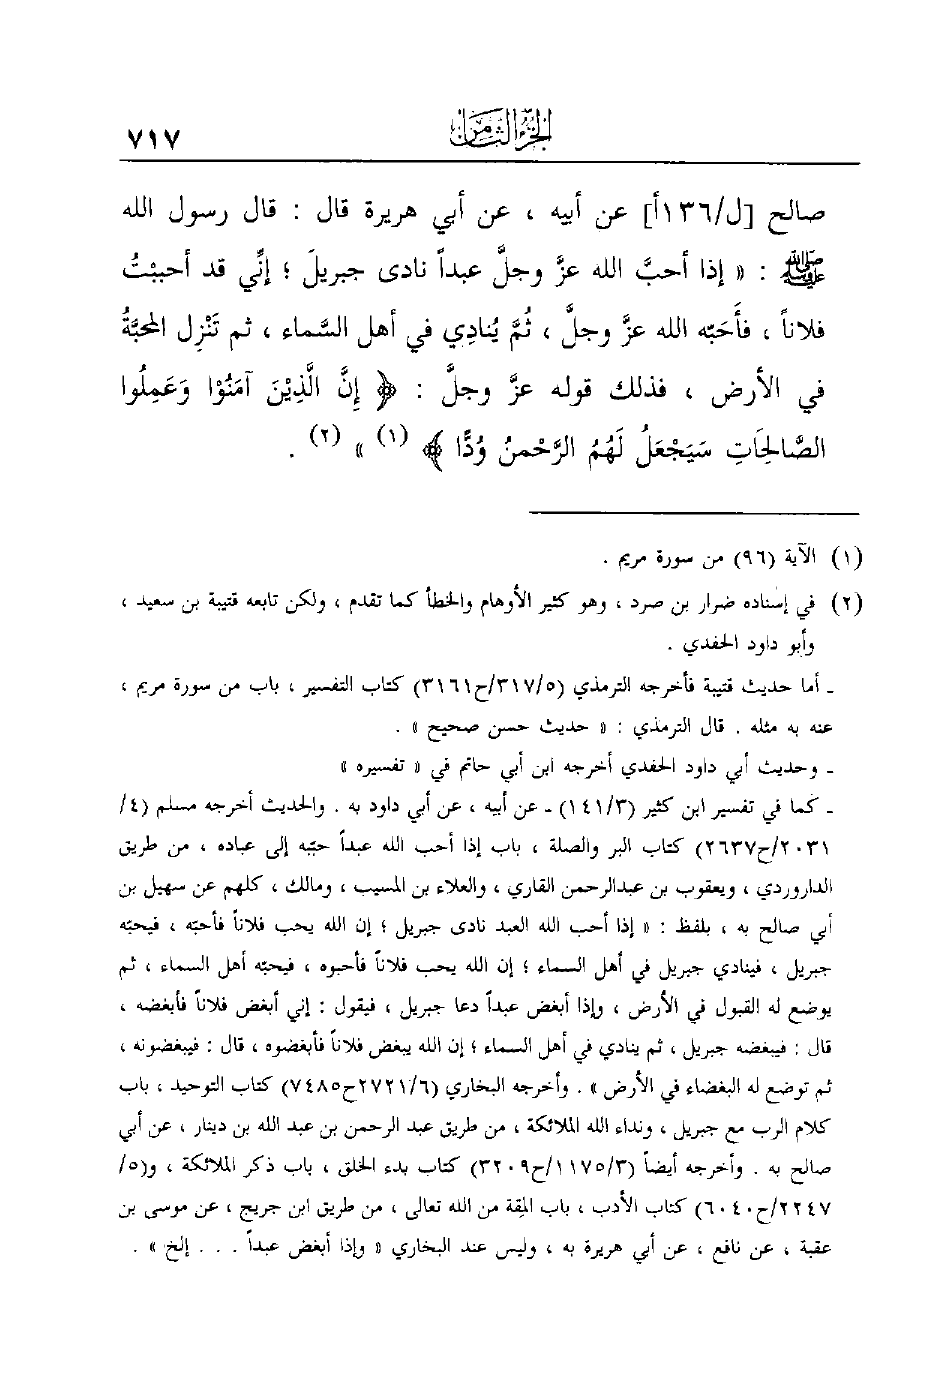 الجزء الثامن ٧١٧
صالح [ل/١٣٦أ] عن أبيه ، عن أبي هريرة قال : قال رسول الله
ﷺ : « إذا أحبَّ الله عزَّ وجلَّ عبداً نادى جبريلَ ؛ إنِّي قد أحببْتُ
فلاناً ، فأَحَبّه الله عزَّ وجلَّ ، ثُمَّ يُنادِي في أهل السَّماء ، ثم تَنْزِل المحبَّةُ
في الأرض ، فذلك قوله عزَّ وجلَّ : ﴿ إِنَّ الَّذِيْنَ آمَنُوْا وَعَمِلُوا
الصَّالِحَاتِ سَيَجْعَلُ لَهُمُ الرَّحْمنُ وُدًّا ﴾ (١) » (٢) .
(١) الآية (٩٦) من سورة مريم .
(٢) في إسناده ضرار بن صرد ، وهو كثير الأوهام والخطأ كما تقدم ، ولكن تابعه قتيبة بن سعيد ،
وأبو داود الحفدي .
ـ أما حديث قتيبة فأخرجه الترمذي (٣١٧/٥/ح٣١٦١) كتاب التفسير ، باب من سورة مريم ،
عنه به مثله . قال الترمذي : « حديث حسن صحيح » .
ـ وحديث أبي داود الحفدي أخرجه ابن أبي حاتم في « تفسيره »
ـ كما في تفسير ابن كثير (١٤١/٣) ـ عن أبيه ، عن أبي داود به . والحديث أخرجه مسلم (٤/
٢٠٣١/ح٢٦٣٧) كتاب البر والصلة ، باب إذا أحب الله عبداً حبّبه إلى عباده ، من طريق
الداروردي ، ويعقوب بن عبدالرحمن القاري ، والعلاء بن المسيب ، ومالك ، كلهم عن سهيل بن
أبي صالح به ، بلفظ : « إذا أحب الله العبد نادى جبريل ؛ إن الله يحب فلاناً فأحبّه ، فيحبّه
جبريل ، فينادي جبريل في أهل السماء ؛ إن الله يحب فلاناً فأحبوه ، فيحبّه أهل السماء ، ثم
يوضع له القبول في الأرض ، وإذا أبغض عبداً دعا جبريل ، فيقول : إني أبغض فلاناً فأبغضه ،
قال : فيبغضه جبريل ، ثم ينادي في أهل السماء ؛ إن الله يبغض فلاناً فأبغضوه ، قال : فيبغضونه ،
ثم توضع له البغضاء في الأرض » . وأخرجه البخاري (٢٧٢١/٦ح٧٤٨٥) كتاب التوحيد ، باب
كلام الرب مع جبريل ، ونداء الله الملائكة ، من طريق عبد الرحمن بن عبد الله بن دينار ، عن أبي
صالح به . وأخرجه أيضاً (١١٧٥/٣/ح٣٢٠٩) كتاب بدء الخلق ، باب ذكر الملائكة ، و(٥/
٢٢٤٧/ح٦٠٤٠) كتاب الأدب ، باب المِقة من الله تعالى ، من طريق ابن جريج ، عن موسى بن
عقبة ، عن نافع ، عن أبي هريرة به ، وليس عند البخاري « وإذا أبغض عبداً . . . إلخ » .